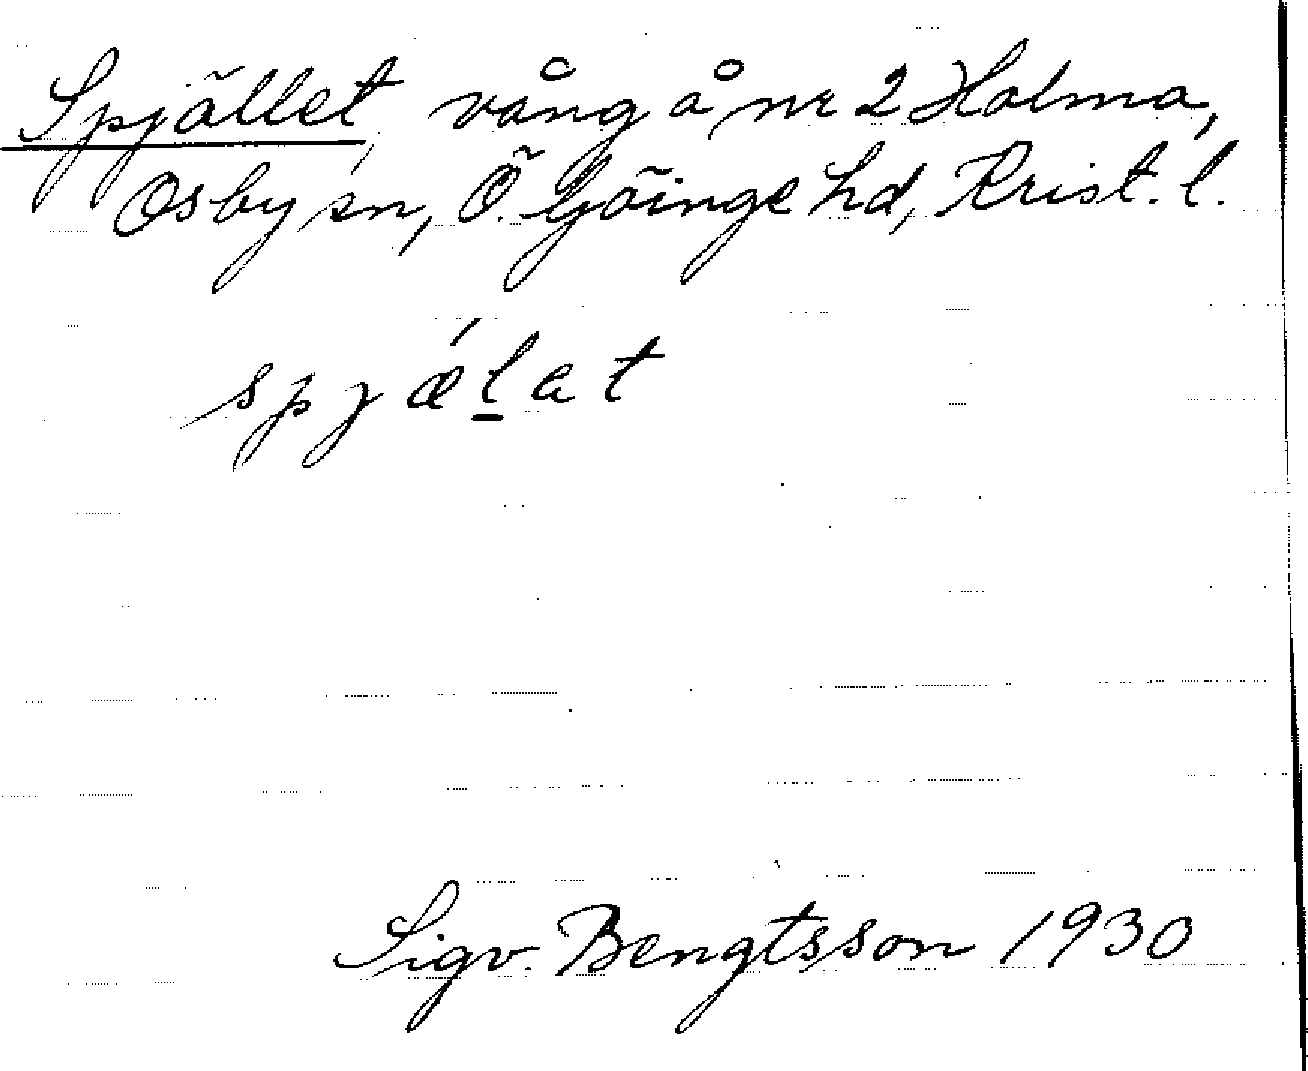 Spjället, vång å nr 2 Holma,
Osby sn, Ö. Göinge hd, Krist. l.
spjæ´l̲at
Sigv. Bengtsson 1930